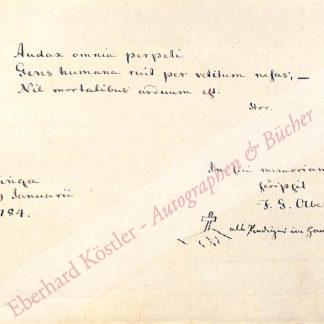 Audax omnia perpeti
Gens humana ruit per vetitum nefas; —
Nil mortalibus arduum est.
Hor.
ingae
Januarii
784.
In sui memoriam
scripsit
F. G.
als Prediger in
Eberhard Köstler - Autographen & Bücher